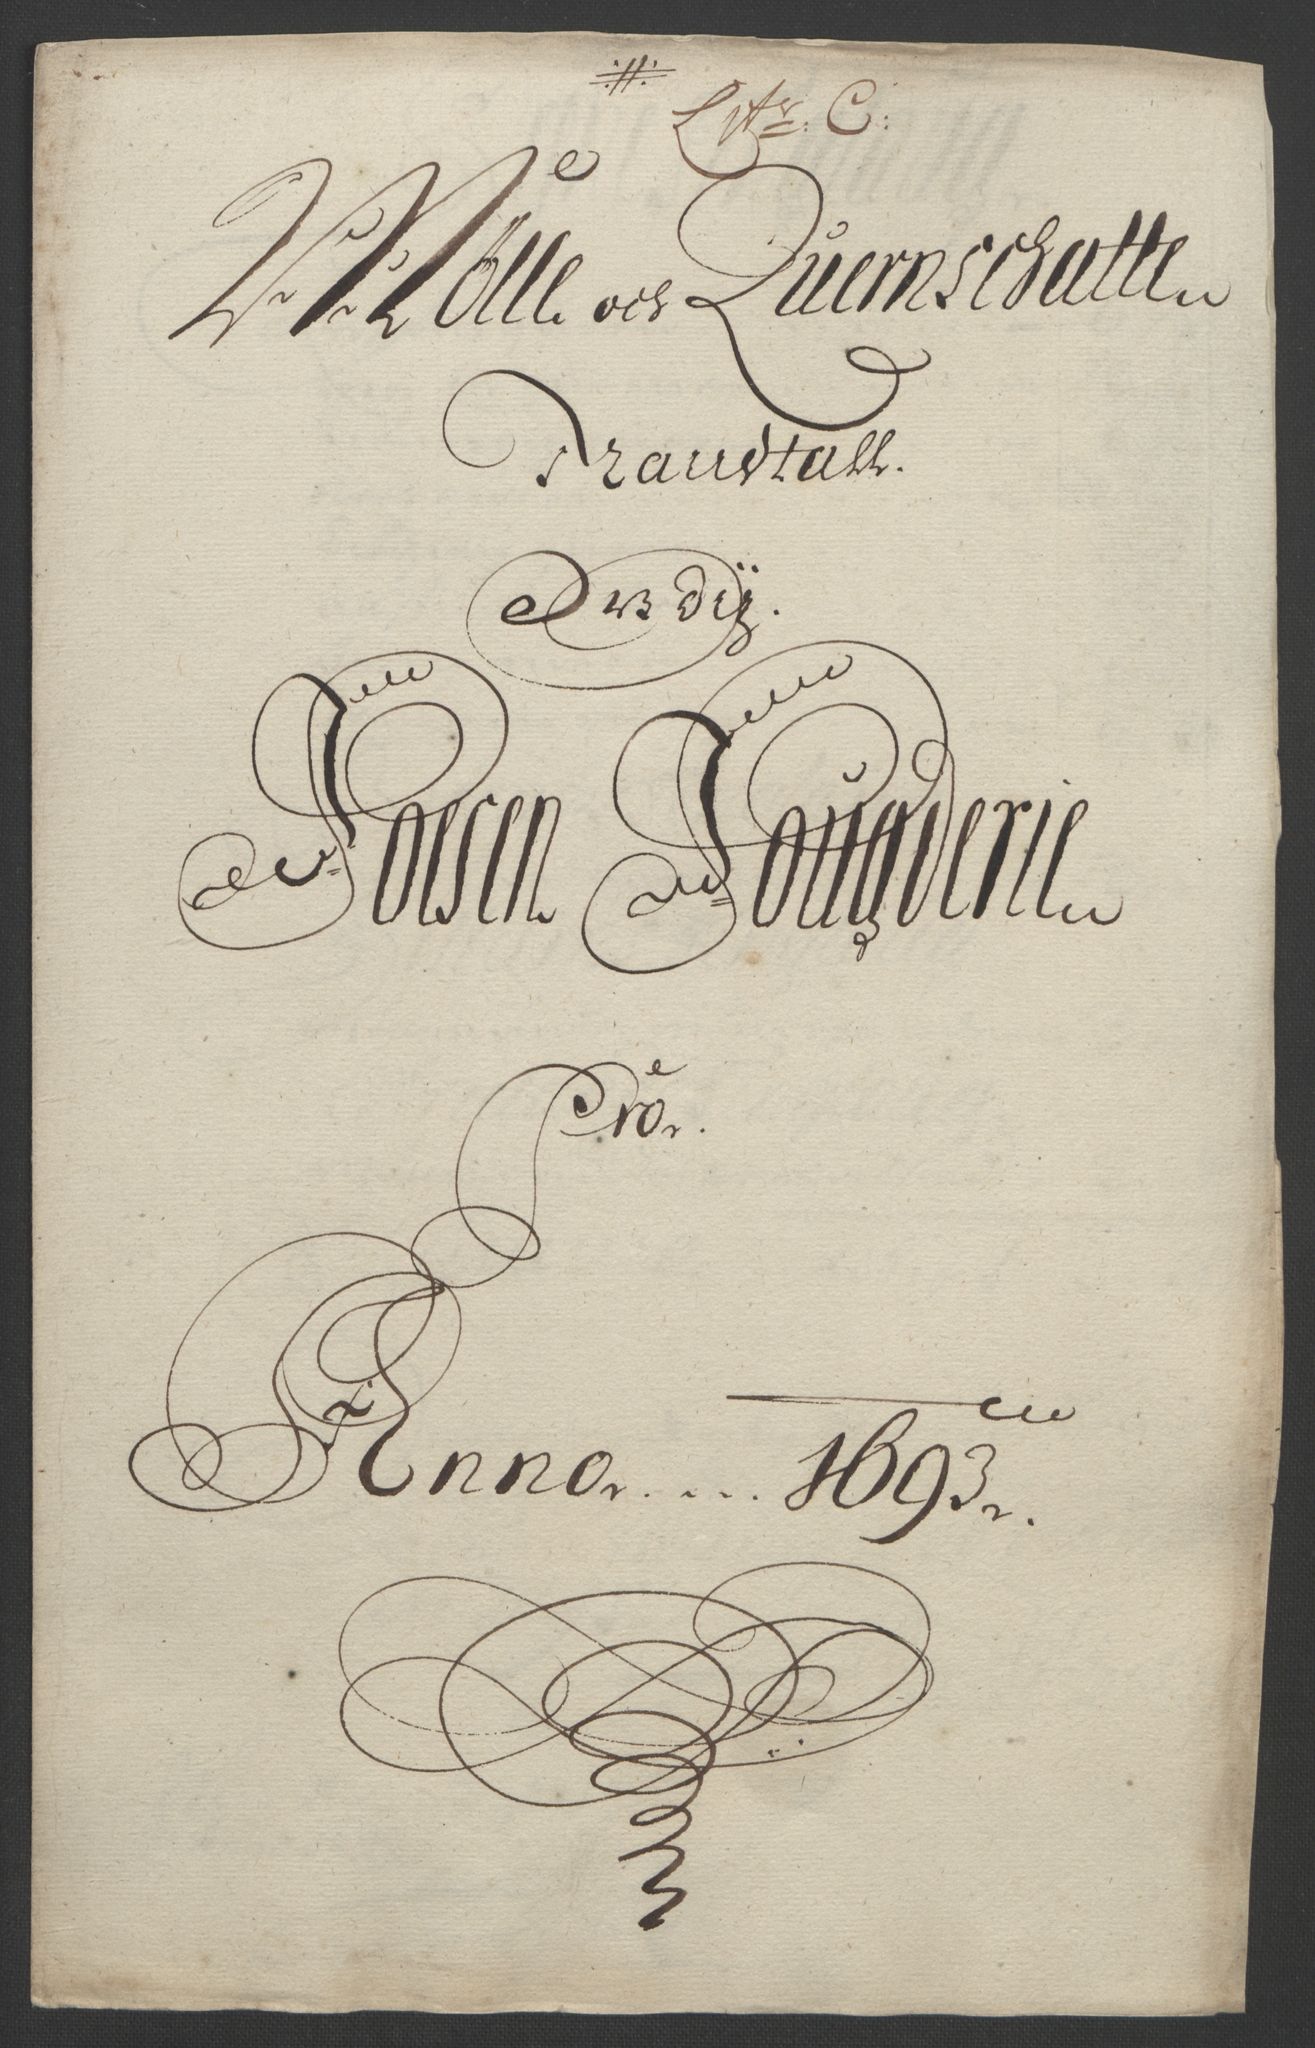 Litr: C:
Mølle och Quernschatte
Mandtall.
Udij
Fosen Fougderie
Prö.
Anno.... 1693.